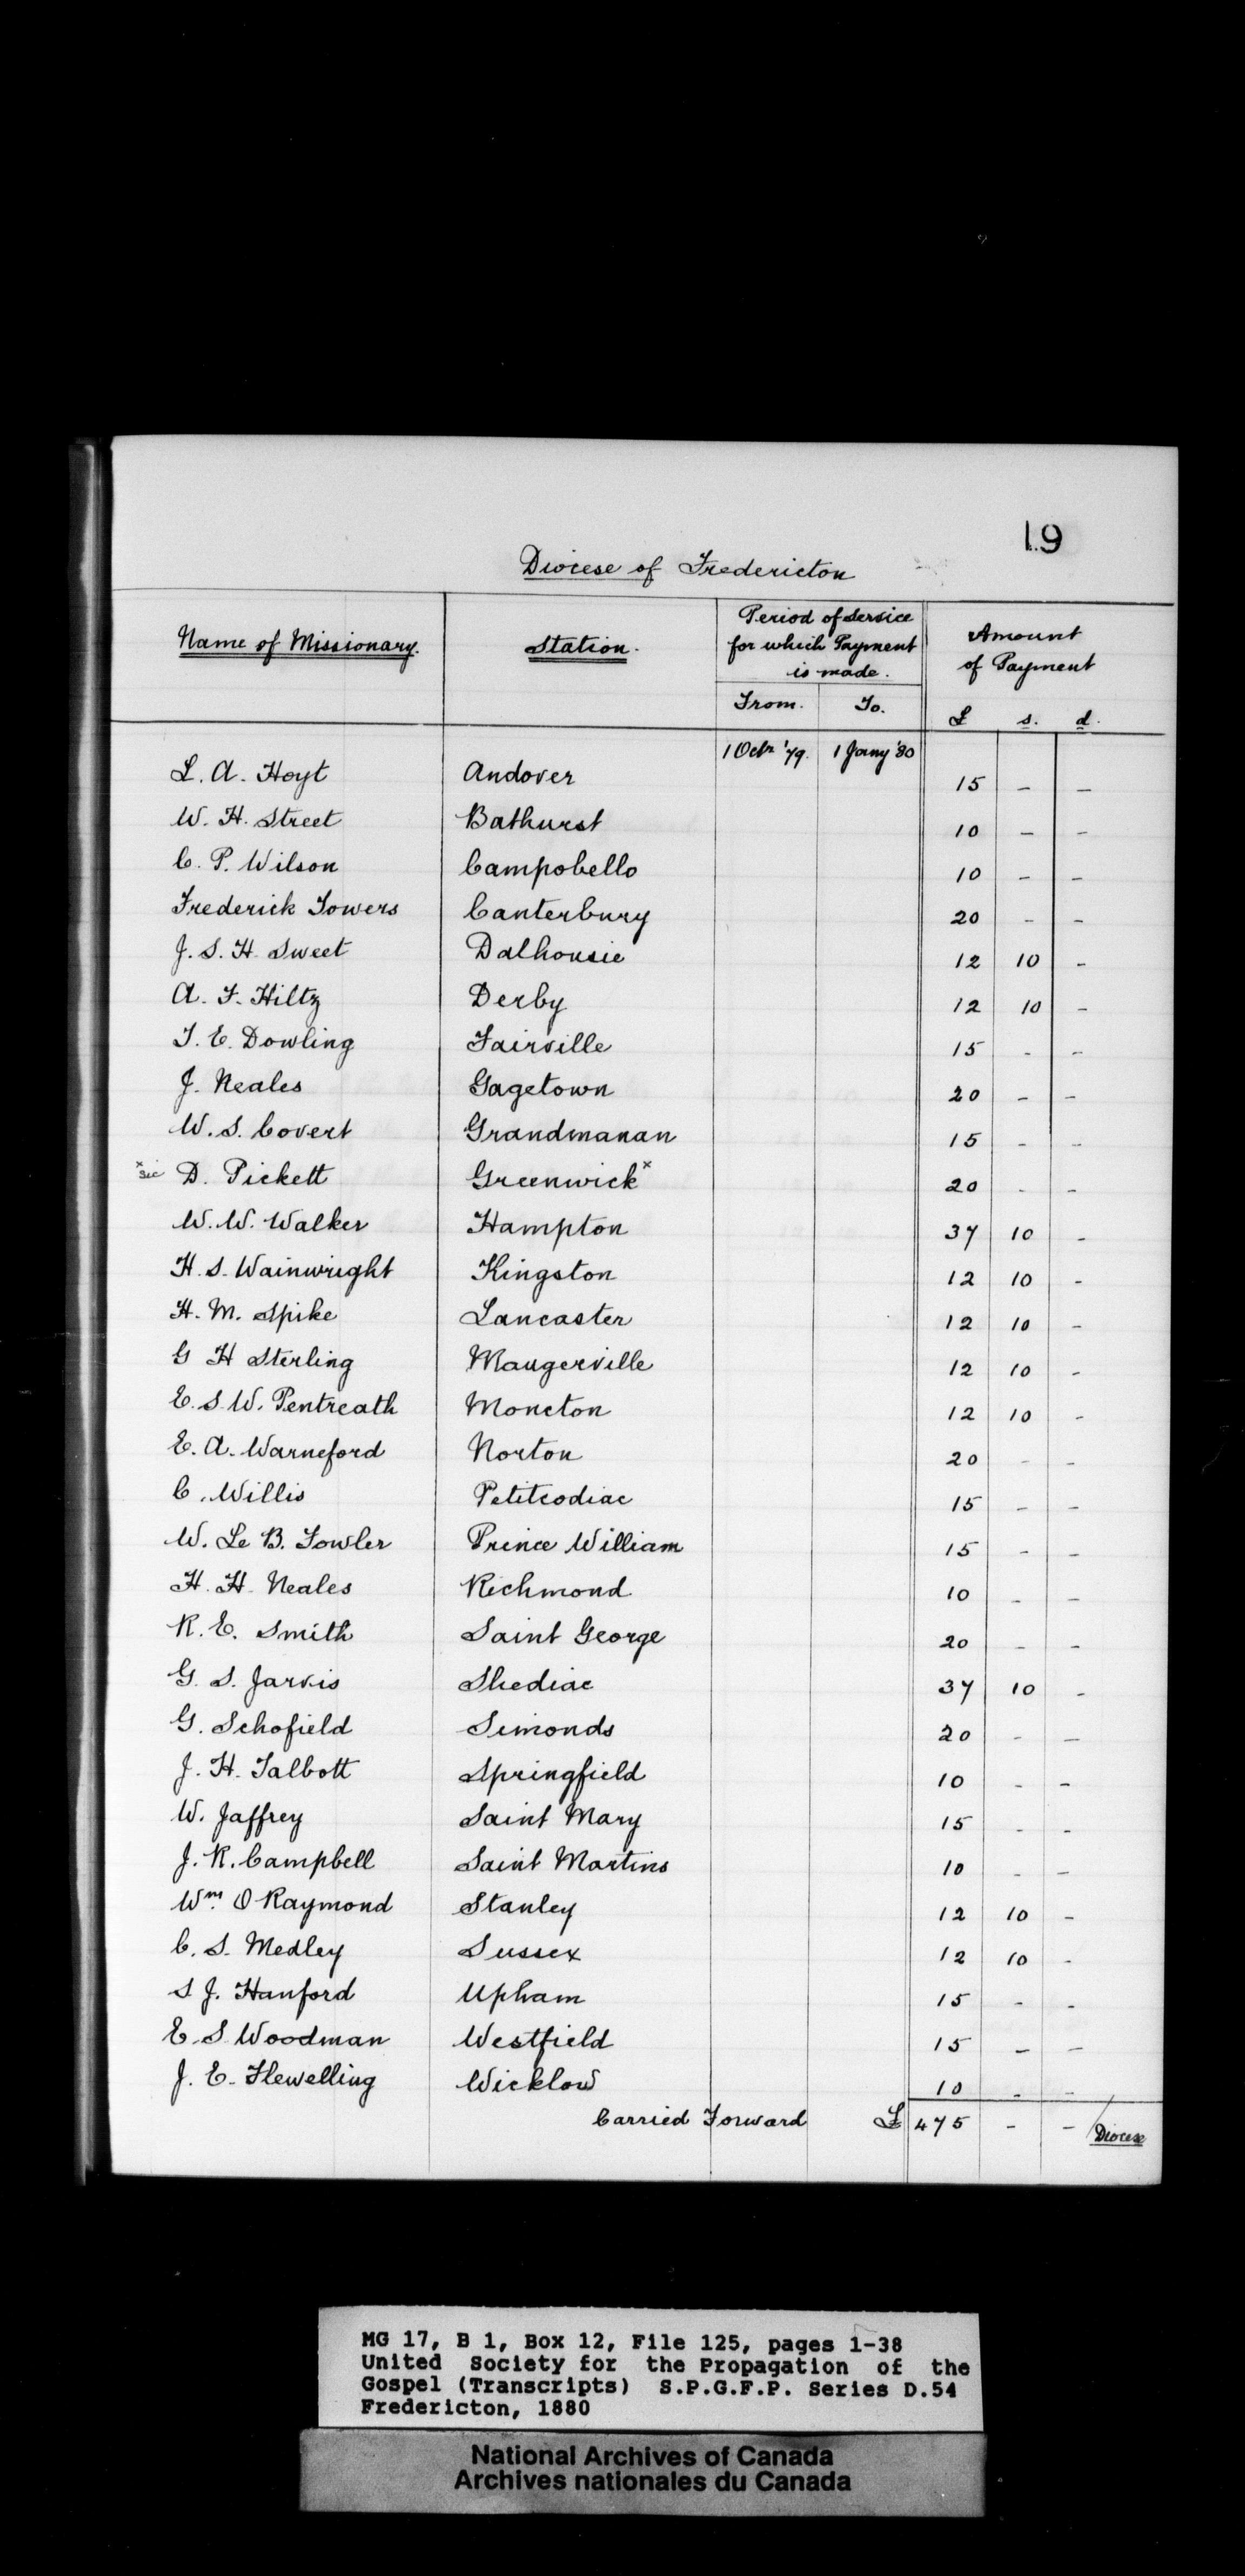 19
Diocese of Fredericton
Name of Missionary. Station. Period of Service for which Payment is made. Amount of Payment
From. To. £ s. d.
1 Octr '79. 1 Jany '80
L. A. Hoyt Andover 15 - -
W. H. Street Bathurst 10 - -
C. P. Wilson Campobello 10 - -
Frederick Towers Canterbury 20 - -
J. S. H. Sweet Dalhousie 12 10 -
A. F. Hiltz Derby 12 10 -
T. E. Dowling Fairville 15 - -
J. Neales Gagetown 20 - -
W. S. Covert Grandmanan 15 - -
x sic D. Pickett Greenwick x 20 - -
W. W. Walker Hampton 37 10 -
H. S. Wainwright Kingston 12 10 -
H. M. Spike Lancaster 12 10 -
G H Sterling Maugerville 12 10 -
E. S. W. Pentreath Moncton 12 10 -
E. A. Warneford Norton 20 - -
C. Willis Petitcodiac 15 - -
W. Le B. Fowler Prince William 15 - -
H. H. Neales Richmond 10 - -
R. E. Smith Saint George 20 - -
G. S. Jarvis Shediac 37 10 -
G. Schofield Simonds 20 - -
J. H. Talbott Springfield 10 - -
W. Jaffrey Saint Mary 15 - -
J. R. Campbell Saint Martins 10 - -
Wm. O Raymond Stanley 12 10 -
C. S. Medley Sussex 12 10 -
S J. Hanford Upham 15 - -
E. S Woodman Westfield 15 - -
J. E. Flewelling Wicklow 10 - -
Carried Forward £ 475 - - / Diocese
MG 17, B 1, Box 12, File 125, pages 1-38
United Society for the Propagation of the
Gospel (Transcripts) S.P.G.F.P. Series D.54
Fredericton, 1880
National Archives of Canada
Archives nationales du Canada